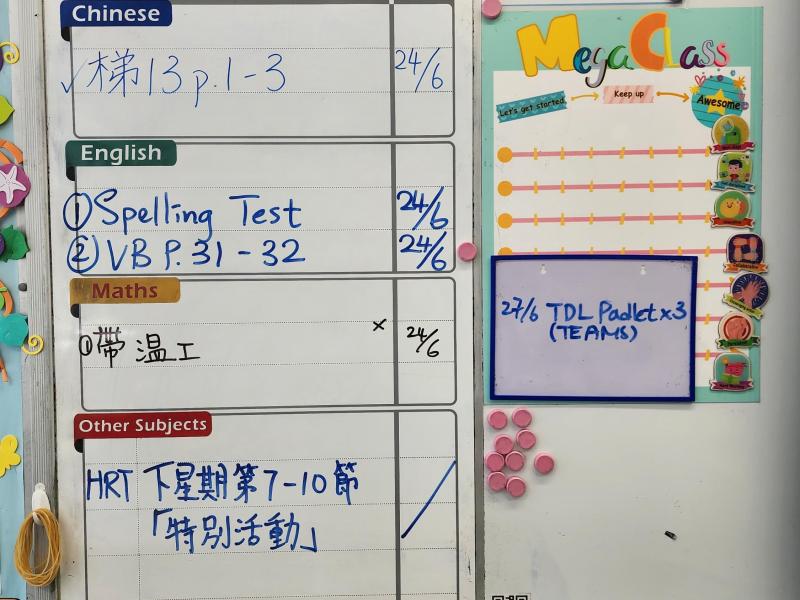 Chinese
✓梯13 p.1-3 24/6
English
①Spelling Test 24/6
②VB P.31-32 24/6
Maths
①帶溫工 × 24/6
Other Subjects
HRT 下星期第7-10節
「特別活動」
Mega Class
Let's get started
Keep up
Awesome
27/6 TDL Padlet x3
(TEAMS)